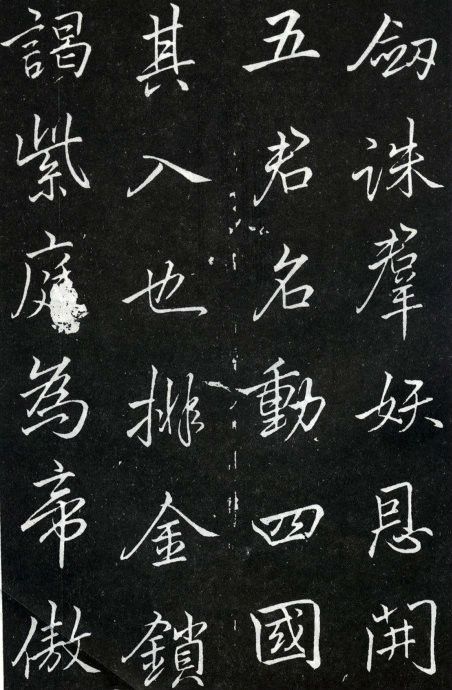 劒誅羣妖恩開
五君名動四國
其入也排金鎖
謁紫庭為帝傲